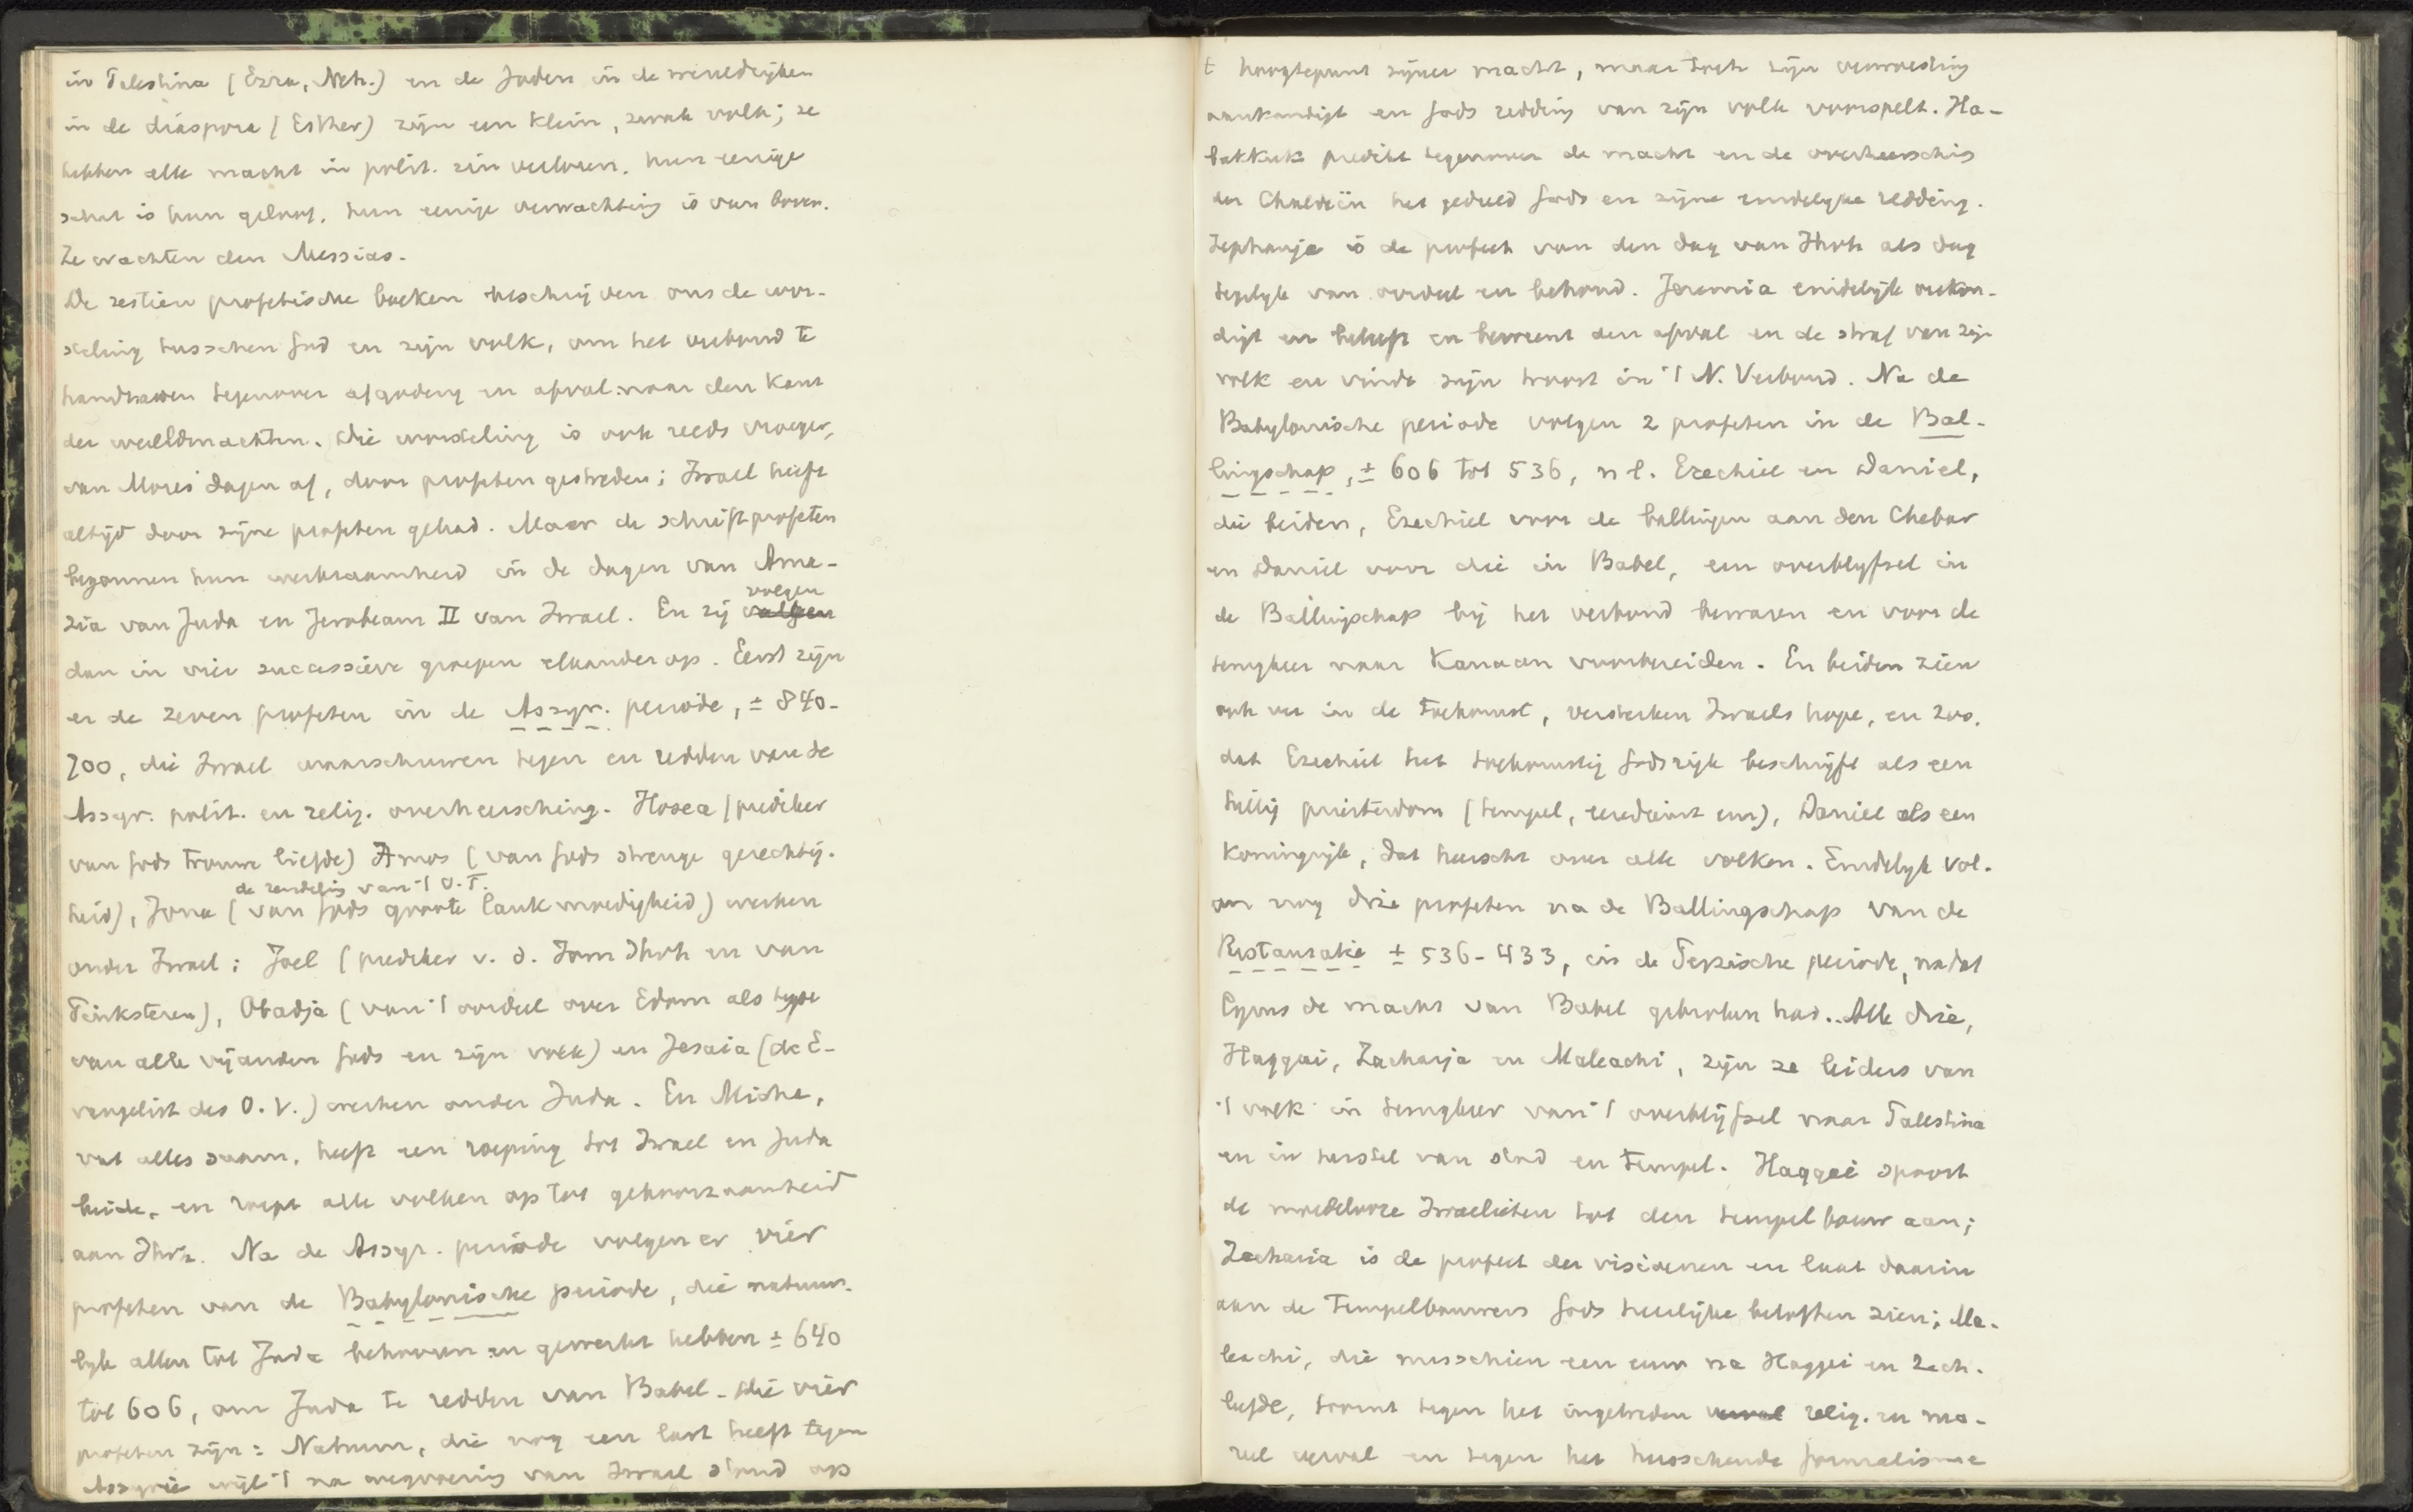 in Palestina (Ezra, Neh.) en de Joden in de wereldrijken
in de diaspora (Esther) zijn een klein, zwak volk; ze
hebben alle macht in polit. zin verloren. hun eenige
schat is hun geloof, hun eenige verwachting is van boven.
Ze wachten den Messias.
De zestien profetische boeken beschrijven ons de wor-
steling tusschen God en zijn volk, om het verbond te
handhaven tegenover afgoderij en afval naar den kant
der wereldmachten. Die worsteling is ook reeds vroeger,
van Mozes dagen af, door profeten gestreden; Israel heeft
altijd door zijne profeten gehad. Maar de schriftprofeten
begonnen hun werkzaamheid in de dagen van Ama-
volgen
zia van Juda en Jerobeam II van Israel. En zij
dan in vier successieve groepen elkander op. Eerst zijn
er de zeven profeten in de Assyr. periode, ± 840-
700, die Israel waarschuwen tegen en redden van de
Assyr. polit. en relig. overheersching. Hosea (prediker
van Gods trouwe liefde) Amos (van Gods strenge gerechtig-
de zendeling van 't O.T.
heid), Jona (van Gods groote lankmoedigheid) werken
onder Israel; Joel (prediker v. d. Jom Jhvh en van
Pinksteren), Obadja (van 't oordeel over Edom als type
van alle vijanden Gods en zijn volk) en Jesaia (de E-
vangelist des O.V.) werken onder Juda. En Micha,
vat alles saam, heeft een roeping tot Israel en Juda
beide, en roept alle volken op tot gehoorzaamheid
aan Jhvh. Na de Assyr. periode volgen er vier
profeten van de Babylonische periode, die natuur-
lijk allen tot Juda behooren en gewerkt hebben ± 640
tot 606, om Juda te redden van Babel. Die vier
profeten zijn: Nahum, die nog een last heeft tegen
Assyrië wijl 't na wegvoering van Israel stond op
t hoogtepunt zijner macht, maar toch zijn verwoesting
aankondigt en Gods redding van zijn volk voorspelt. Ha-
bakkuk predikt tegenover de macht en de overheersching
der Chaldeën het geduld Gods en zijne eindelijke redding.
Zephanja is de profeet van den dag van Jhvh als dag
tegelijk van oordeel en behoud. Jeremia eindelijk verkon-
digt en beleeft en beweent den afval en de straf van zijn
volk en vindt zijn troost in 't N. Verbond. Na de
Babylonische periode volgen 2 profeten in de Bal-
lingschap, ± 606 tot 536, n l. Ezechiel en Daniel,
die beiden, Ezechiel voor de ballingen aan den Chebar
en Daniel voor die in Babel, een overblijfsel in
de Ballingschap bij het verbond bewaren en voor de
terugkeer naar Kanaan voorbereiden. En beiden zien
ook ver in de toekomst, versterken Israels hope, en zoo,
dat Ezechiel het toekomstig Godsrijk beschrijft als een
heilig priesterdom (tempel, eeredienst enz), Daniel als een
koningrijk, dat heerscht over alle volken. Eindelijk vol-
gen nog drie profeten na de Ballingschap van de
Restauratie ± 536-433, in de Perzische periode, nadat
Cyrus de macht van Babel gebroken had. Alle drie,
Haggai, Zacharja en Maleachi, zijn ze leiders van
't volk in terugkeer van 't overblijfsel naar Palestina
en in herstel van stad en tempel. Haggai spoort
de moedelooze Israelieten tot den tempelbouw aan;
Zacharia is de profeet der visioenen en laat daarin
aan de Tempelbouwers Gods heerlijke beloften zien; Ma-
leachi, die misschien een eeuw na Haggai en Zach.
leefde, toornt tegen het ingetreden relig. en mo-
reel verval en tegen het heerschende formalisme